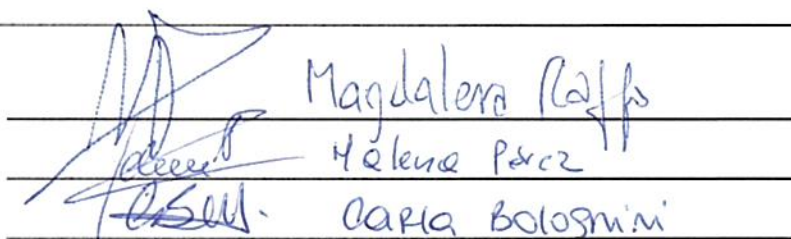 Magdalena Raffo
Malena Pérez
CARLA BOLOGNINI